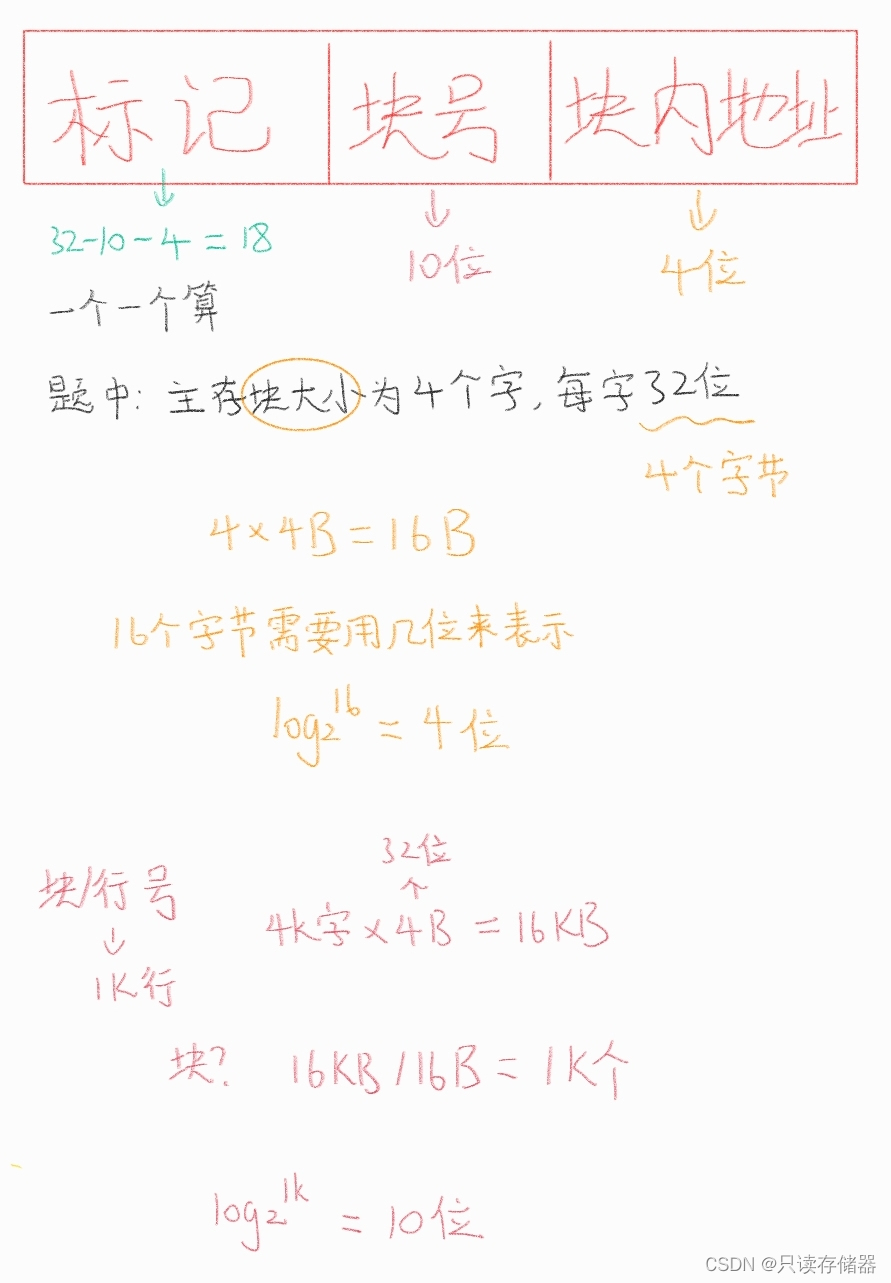 标记 块号 块内地址
32-10-4=18 10位 4位
一个一个算
题中：主存块大小为4个字，每字32位
4个字节
4×4B=16B
16个字节需要用几位来表示
log₂¹⁶=4位
32位
块/行号 4K字×4B=16KB
1K行
块? 16KB/16B=1K个
log₂¹ᵏ=10位
CSDN @只读存储器